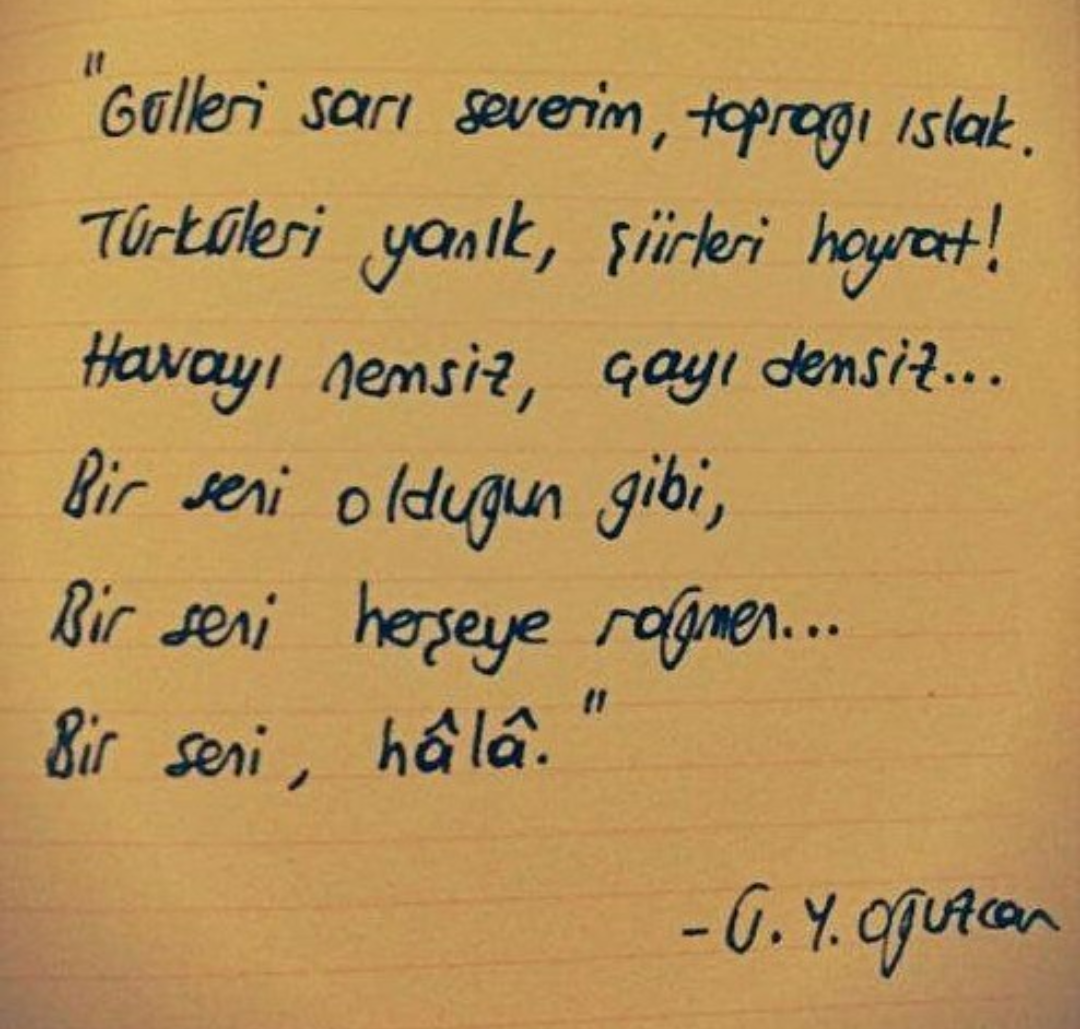 "Gülleri sarı severim, toprağı ıslak.
Türküleri yanık, şiirleri hoyrat!
Havayı nemsiz, çayı demsiz...
Bir seni olduğun gibi,
Bir seni herşeye rağmen...
Bir seni, hâlâ."
- Ü. Y. Oğuzcan